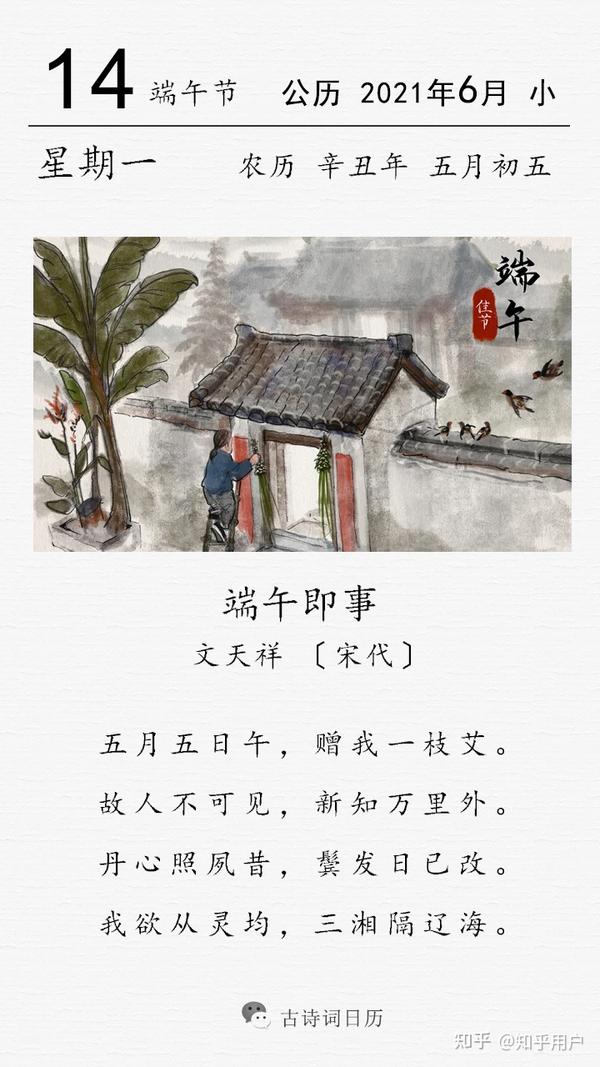 14 端午节 公历 2021年6月 小
星期一 农历 辛丑年 五月初五
端午
佳节
端午即事
文天祥 〔宋代〕
五月五日午，赠我一枝艾。
故人不可见，新知万里外。
丹心照夙昔，鬓发日已改。
我欲从灵均，三湘隔辽海。
古诗词日历
知乎 @知乎用户